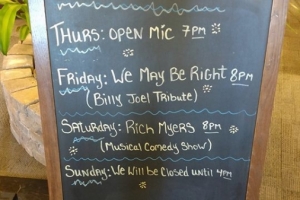 Thurs: Open Mic 7pm
Friday: We May Be Right 8pm
(Billy Joel Tribute)
Saturday: Rich Myers 8pm
(Musical Comedy Show)
Sunday: We Will be Closed until 4pm